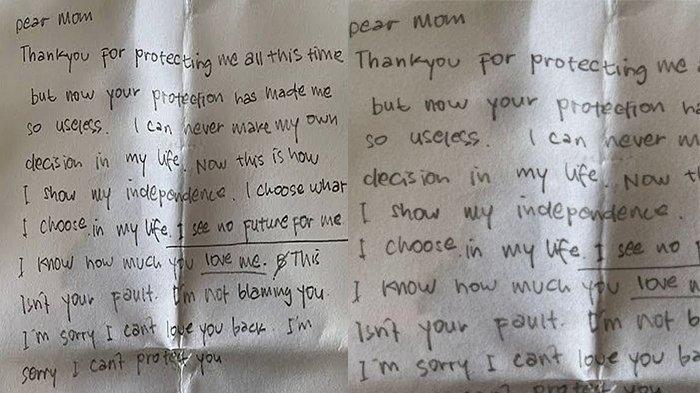 Dear Mom
Thankyou for protecting me all this time
but now your protection has made me
so useless. I can never make my own
decision in my life. Now this is how
I show my independence. I choose what
I choose in my life. I see no future for me
I know how much you love me. This
Isn't your fault. I'm not blaming you
I'm sorry I cant love you back. I'm
sorry I can't protect you
Dear Mom
Thankyou for protecting me a
but now your protection ha
so useless. I can never m
decision in my life. Now th
I show my independence.
I choose in my life. I see no
I know how much you love m
Isn't your fault. I'm not b
I'm sorry I cant love you ba
protect you